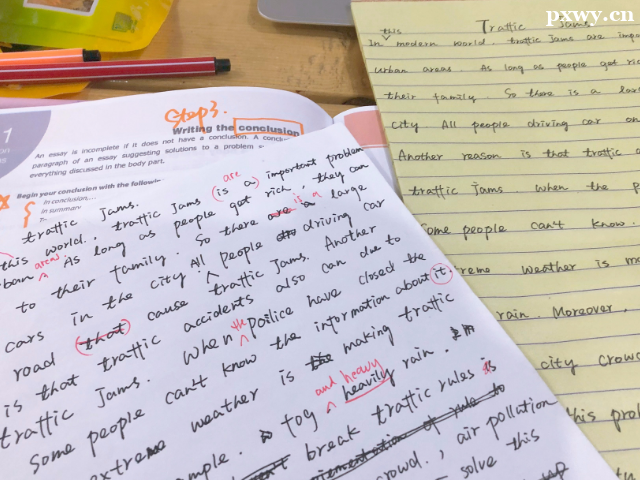 pxwy.cn
Traffic Jams
this
In modern world. traffic jams are
urban areas. As long as people got ric
their family. So there is a lar
city All people driving car on
Another reason is that traffic a
traffic jams when the p
Some people can't know.
reme weather is m
rain. Moreover,
city crowd
his prob
Step3.
Writing the conclusion
An essay is incomplete if it does not have a conclusion. A conclu
paragraph of an essay suggesting solutions to a problem
everything discussed in the body part.
Begin your conclusion with the followin
in conclusion,...
in summary
traffic jams.
are
this world. traffic jams (is a) important problem
rban areas As long as people got rich, they can
to their family. So there are is a large
cars in the city All people driving car
road that cause traffic Jams. Another
is that traffic accidents also can due to
traffic jams. When the poilice have closed the
Some people can't know the information about it.
extreme weather is making traffic
and heavy
mple. fog heavily rain.
break traffic rules is
crowd., air pollution
solve this